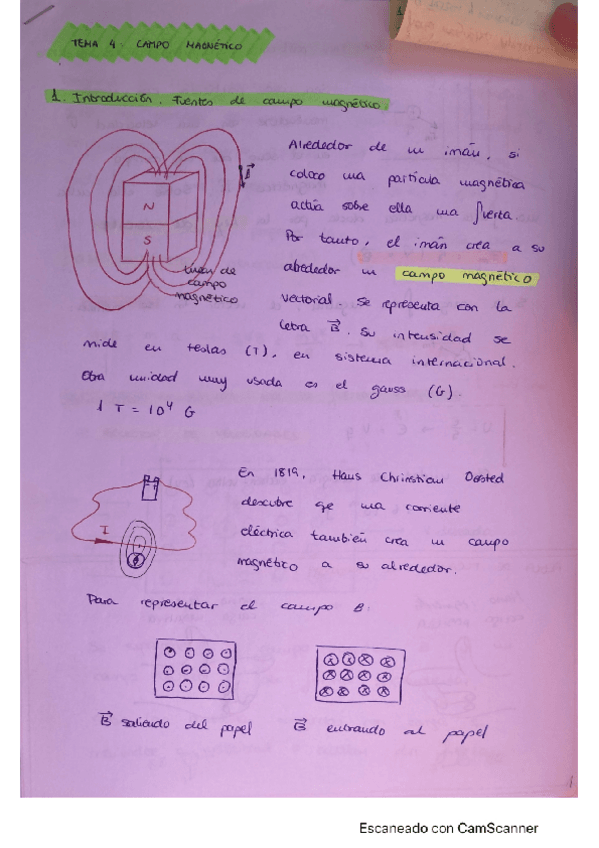 TEMA 4. CAMPO MAGNÉTICO
1. Introducción. Fuentes de campo magnético.
Alrededor de un imán, si
coloco una partícula magnética
actúa sobre ella una fuerza.
Por tanto, el imán crea a su
alrededor un campo magnético
vectorial. Se representa con la
letra B⃗. Su intensidad se
mide en teslas (T), en sistema internacional.
Otra unidad muy usada es el gauss (G).
1 T = 10⁴ G
N
S
línea de
campo
magnético
En 1819, Hans Chirinstian Oersted
descubre qe una corriente
eléctrica también crea un campo
magnético a su alrededor.
I
Para representar el campo B:
B⃗ saliendo del papel
B⃗ entrando al papel
1
Escaneado con CamScanner